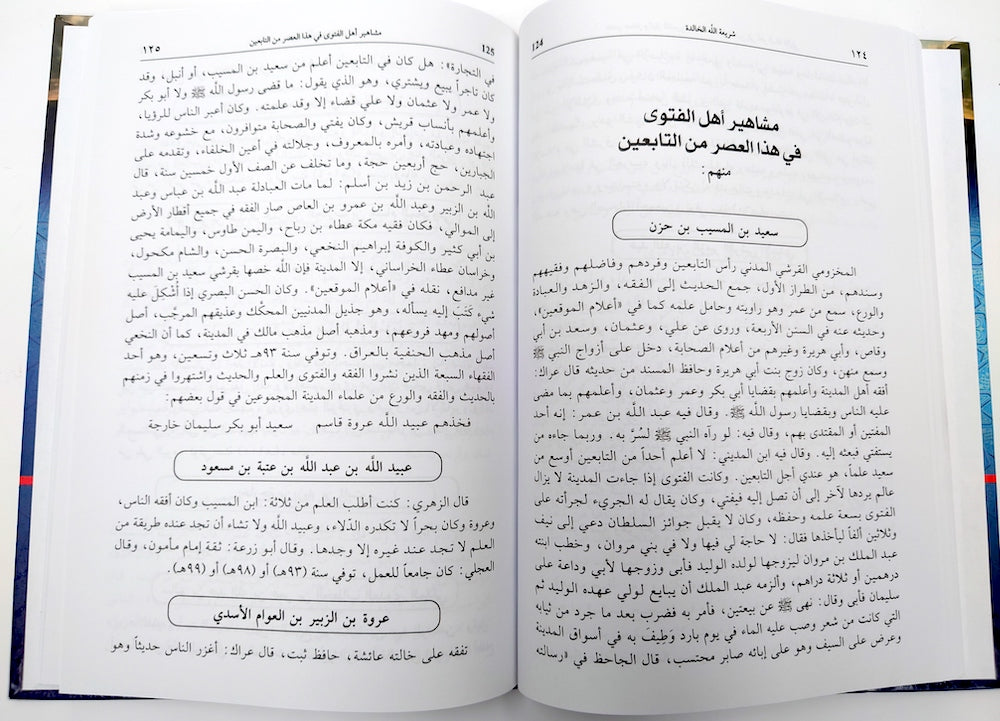 شريعة اللّٰه الخالدة
١٢٤
124
مشاهير أهل الفتوى
في هذا العصر من التابعين
منهم:
سعيد بن المسيب بن حزن
المخزومي القرشي المدني رأس التابعين وفردهم وفاضلهم وفقيههم
وسندهم، من الطراز الأول، جمع الحديث إلى الفقه، والزهد والعبادة
والورع، سمع من عمر وهو راويته وحامل علمه كما في «أعلام الموقعين»،
وحديثه عنه في السنن الأربعة، وروى عن علي، وعثمان، وسعد بن أبي
وقاص، وأبي هريرة وغيرهم من أعلام الصحابة، دخل على أزواج النبي ﷺ
وسمع منهن، وكان زوج بنت أبي هريرة وحافظ المسند من حديثه قال عراك:
أفقه أهل المدينة وأعلمهم بقضايا أبي بكر وعمر وعثمان، وأعلمهم بما مضى
عليه الناس وبقضايا رسول اللّٰه ﷺ. وقال فيه عبد اللّٰه بن عمر: إنه أحد
المفتين أو المقتدى بهم، وقال فيه: لو رآه النبي ﷺ لسُرَّ به. وربما جاءه من
يستفتي فبعثه إليه. وقال فيه ابن المديني: لا أعلم أحداً من التابعين أوسع من
سعيد علماً، هو عندي أجل التابعين. وكانت الفتوى إذا جاءت المدينة لا يزال
عالم يردها لآخر إلى أن تصل إليه فيفتي، وكان يقال له الجريء لجرأته على
الفتوى بسعة علمه وحفظه، وكان لا يقبل جوائز السلطان دعي إلى نيف
وثلاثين ألفاً ليأخذها فقال: لا حاجة لي فيها ولا في بني مروان، وخطب ابنته
عبد الملك بن مروان ليزوجها لولده الوليد فأبى وزوجها لأبي وداعة على
درهمين أو ثلاثة دراهم، وألزمه عبد الملك أن يبايع لولي عهده الوليد ثم
سليمان فأبى وقال: نهى ﷺ عن بيعتين، فأمر به فضرب بعد ما جرد من ثيابه
التي كانت من شعر وصب عليه الماء في يوم بارد وَطِيفَ به في أسواق المدينة
وعرض على السيف وهو على إبائه صابر محتسب، قال الجاحظ في «رسالته
مشاهير أهل الفتوى في هذا العصر من التابعين
١٢٥
125
في التجارة»: هل كان في التابعين أعلم من سعيد بن المسيب، أو أنبل، وقد
كان تاجراً يبيع ويشتري، وهو الذي يقول: ما قضى رسول اللّٰه ﷺ ولا أبو بكر
ولا عمر ولا عثمان ولا علي قضاء إلا وقد علمته. وكان أعبر الناس للرؤيا،
وأعلمهم بأنساب قريش، وكان يفتي والصحابة متوافرون، مع خشوعه وشدة
اجتهاده وعبادته، وأمره بالمعروف، وجلالته في أعين الخلفاء، وتقدمه على
الجبارين، حج أربعين حجة، وما تخلف عن الصف الأول خمسين سنة، قال
عبد الرحمن بن زيد بن أسلم: لما مات العبادلة عبد اللّٰه بن عباس وعبد
اللّٰه بن الزبير وعبد اللّٰه بن عمرو بن العاص صار الفقه في جميع أقطار الأرض
إلى الموالي، فكان فقيه مكة عطاء بن رباح، واليمن طاوس، واليمامة يحيى
بن أبي كثير والكوفة إبراهيم النخعي، والبصرة الحسن، والشام مكحول،
وخراسان عطاء الخراساني، إلا المدينة فإن اللّٰه خصها بقرشي سعيد بن المسيب
غير مدافع، نقله في «أعلام الموقعين». وكان الحسن البصري إذا أُشْكِلَ عليه
شيء كَتَبَ إليه يسأله، وهو جذيل المدنيين المحكَّك وعذيقهم المرجَّب، أصل
أصولهم ومهد فروعهم، ومذهبه أصل مذهب مالك في المدينة، كما أن النخعي
أصل مذهب الحنفية بالعراق. وتوفي سنة ٩٣هـ ثلاث وتسعين، وهو أحد
الفقهاء السبعة الذين نشروا الفقه والفتوى والعلم والحديث واشتهروا في زمنهم
بالحديث والفقه والورع من علماء المدينة المجموعين في قول بعضهم:
فخذهم عبيد اللّٰه عروة قاسم سعيد أبو بكر سليمان خارجة
عبيد اللّٰه بن عبد اللّٰه بن عتبة بن مسعود
قال الزهري: كنت أطلب العلم من ثلاثة: ابن المسيب وكان أفقه الناس،
وعروة وكان بحراً لا تكدره الدِّلاء، وعبيد اللّٰه ولا تشاء أن تجد عنده طريقة من
العلم لا تجد عند غيره إلا وجدها. وقال أبو زرعة: ثقة إمام مأمون، وقال
العجلي: كان جامعاً للعمل، توفي سنة (٩٣هـ) أو (٩٨هـ) أو (٩٩هـ).
عروة بن الزبير بن العوام الأسدي
تفقه على خالته عائشة، حافظ ثبت، قال عراك: أغزر الناس حديثاً وهو